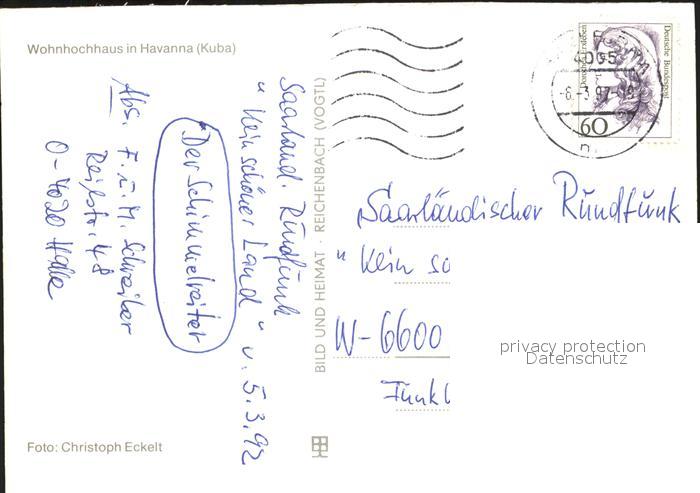 Wohnhochhaus in Havanna (Kuba)
Saarländ. Rundfunk
"Kein schöner Land" v. 5.3.92
"Der Schimmelreiter
Abs. F. u. M. Schreiber
Reilstr. 48
O-4020 Halle
Foto: Christoph Eckelt
BILD UND HEIMAT · REICHENBACH (VOGTL)
Deutsche Bundespost
60
4005
-6.-3.92-18
Saarländischer Rundfunk
"Kein sc
W-6600
Funkl
privacy protection
Datenschutz